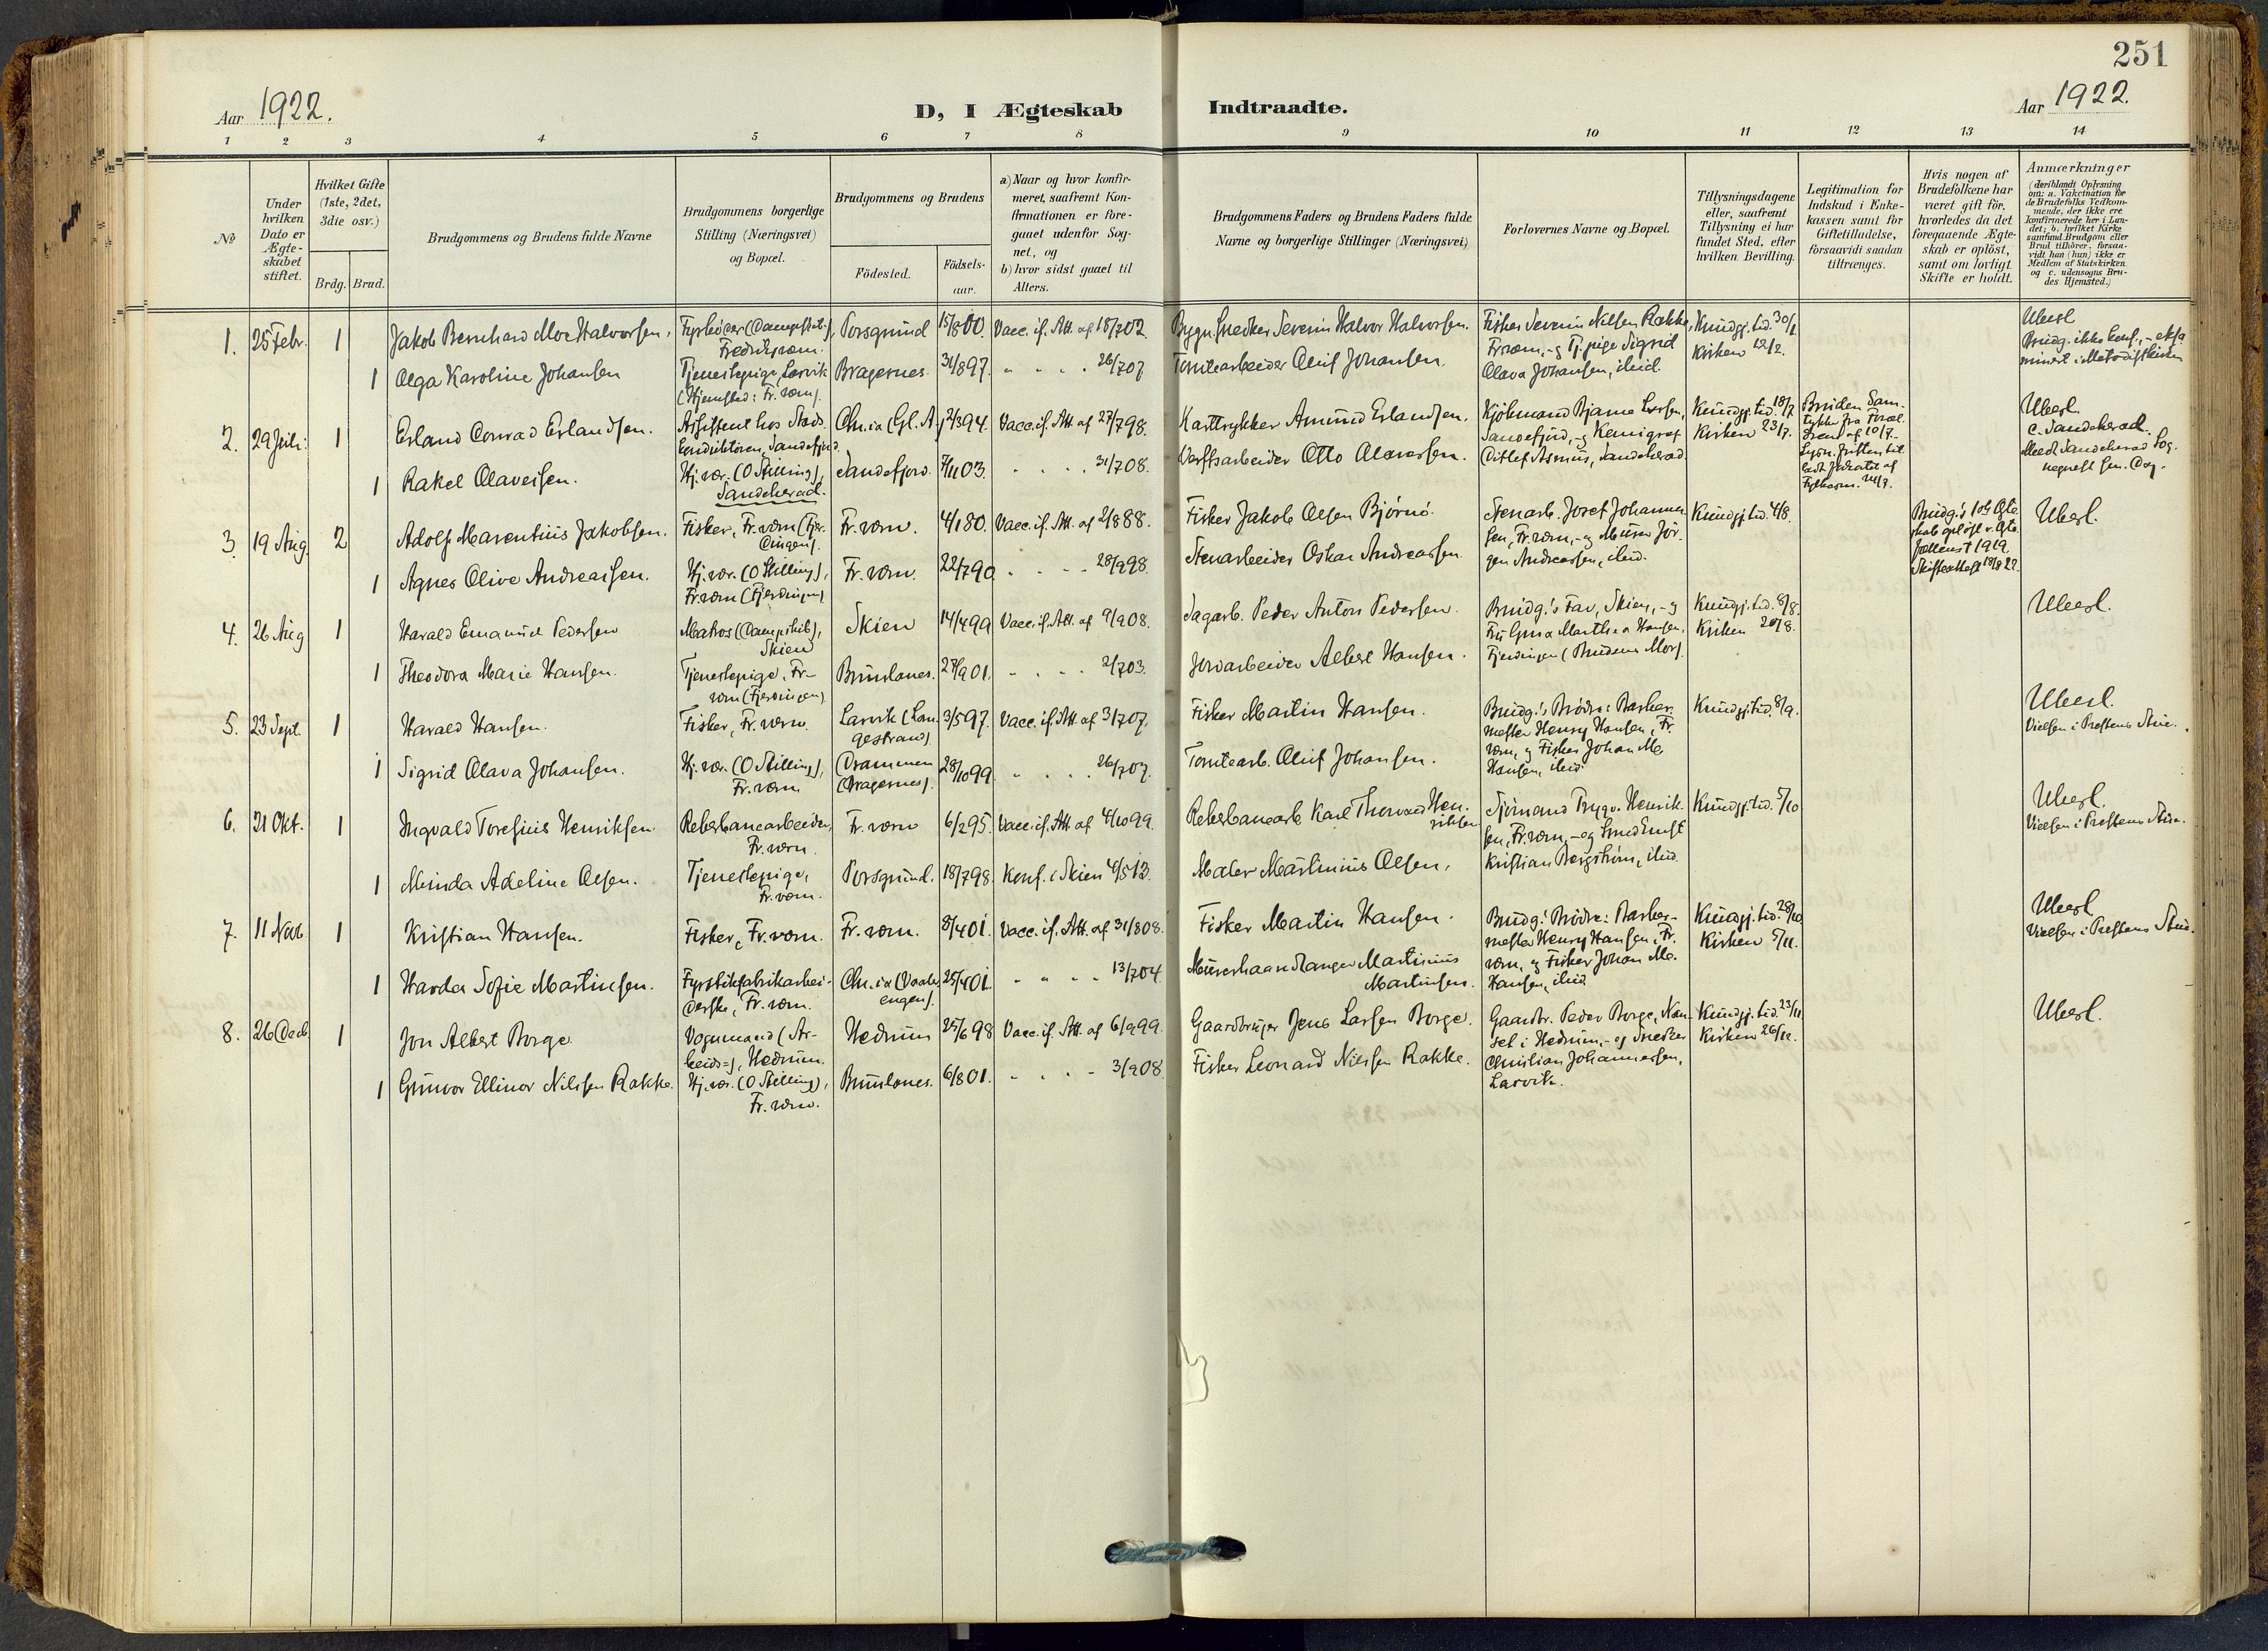 251
Aar 1922.
D, I Ægteskab Indtraadte.
Aar 1922.
1 2 3 4 5 6 7 8 9 10 11 12 13 14
No
Under hvilken Dato er Ægteskabet stiftet.
Hvilket Gifte (1ste, 2det, 3die osv.)
Brdg. Brud.
Brudgommens og Brudens fulde Navne
Brudgommens borgerlige Stilling (Næringsvei) og Bopæl.
Brudgommens og Brudens
Födested. Födselsaar.
a) Naar og hvor konfirmeret, saafremt Konfirmationen er foregaaet udenfor Sognet, og
b) hvor sidst gaaet til Alters.
Brudgommens Faders og Brudens Faders fulde Navne og borgerlige Stillinger (Næringsvei)
Forlovernes Navne og Bopæl.
Tillysningsdagene eller, saafremt Tillysning ei har fundet Sted, efter hvilken Bevilling.
Legitimation for Indskud i Enkekassen samt for Giftetilladelse, forsaavidt saadan tiltrænges.
Hvis nogen af Brudefolkene har været gift för, hvorledes da det foregaaende Ægteskab er oplöst, samt om lovligt Skifte er holdt.
Anmærkninger
(deriblandt Oplysning om: a. Vakcination for de Brudefolks Vedkommende, der ikke ere konfirmerede her i Landet; b. hvilket Kirkesamfund Brudgom eller Brud tilhörer, forsaavidt han (hun) ikke er Medlem af Statskirken og c. udensogns Brudes Hjemsted.)
1. 25 Febr. 1 Jakob Bernhard Moe Halvorsen. Fyrböder (Dampskib), Fredriksværn. Porsgrund 15/8 00. Vacc. if. Att. af 18/7 02. Bygn. snedker Severin Halvor Halvorsen. Fisker Severin Nilsen Rakke, Fr.værn,-og Tj.pige Sigrid Olava Johansen, ibid. Kundgj. tid. 30/1 Kirken 12/2. Ubesl.
Brudg. ikke konf., - eksaminert i Metodistkirken
1 Olga Karoline Johansen Tjenestepige, Larvik (Hjemsted: Fr.værn). Bragernes. 31/8 97. " . . . 26/7 07 Tomtearbeider Oluf Johansen.
2. 29 Juli. 1 Erland Conrad Erlandsen. Assistent hos Stadskonduktören, Sandefjord. Chr.ia (Gl. A.) 2/3 94. Vacc. if. Att. af 27/7 98. Karttrykker Amund Erlandsen. Kjöbmand Bjarne Larsen, Sandefjord,-og Kemigraf Ditlef Asmus, Sandeherad Kundgj. tid. 18/7 Kirken 23/7. Ubesl.
c. Sandeherad.
1 Rakel Olaveisen. Hj.vær. (O Stilling), Sandeherad. Sandefjord. 7/11 03. . . . 31/7 08. Verftsarbeider Otto Olavesen.
3. 19 Aug. 2 Adolf Marentius Jakobsen. Fisker, Fr.værn (Fjerdingen). Fr.værn. 4/1 80. Vacc. if. Att. af 2/8 88. Fisker Jakob Olsen Bjørnö. Stenarb. Josef Johannesen, Fr.værn,-og Murer Jörgen Andreassen, ibid. Kundgj. tid 4/8. Brudg.'s 1ste Ægteskab oplöst v. Ægtefællens † 1919. Skifteattest 18/8 22. Ubesl.
1 Agnes Olive Andreassen. Hj.vær. (O Stilling), Fr.værn (Fjerdingen) Fr.værn. 22/7 90. . . . 28/9 98. Stenarbeider Oskar Andreassen.
4. 26 Aug 1 Harald Emanuel Pedersen Matros (Dampskib), Skien Skien 14/4 99 Vacc. if. Att. af 9/9 08. Sagarb. Peder Anton Pedersen. Brudg.'s Far, Skien,-og Fru Gina Marthea Hansen, Fjerdingen (Brudens Mor). Kundgj. tid. 8/8. Kirken 20/8. Ubesl.
1 Theodora Marie Hansen. Tjenestepige, Fr-værn (Fjerdingen) Brunlanes. 27/9 01. . . . 2/7 03. Jordarbeider Albert Hansen.
5. 23 Sept. 1 Harald Hansen. Fisker, Fr.værn. Larvik (Langestrand). 3/5 97. Vacc. if. Att. af 3/7 07. Fisker Martin Hansen. Brudg.'s Brödre: Barbermester Henry Hansen, Fr.værn, og Fisker Johan M. Hansen, ibid. Kundgj. tid. 8/9. Ubesl.
Vielsen i Prestens Stue.
1 Sigrid Olava Johansen. Hj.vær. (O Stilling), Fr.værn Drammen (Bragernes). 28/10 99 . . . 26/7 07. Tomtearb. Oluf Johansen.
6. 21 Okt. 1 Ingvald Toresius Henriksen Reberbanearbeider, Fr.værn. Fr.værn 6/2 95. Vacc. if. Att. af 4/10 99. Reberbanearb. Karl Thorvald Henriksen Sjömand Trygv. Henriksen, Fr.værn,-og Smed Ernst Kristian Bergström, ibid. Kundgj. tid. 5/10 Ubesl.
Vielsen i Prestens Stue.
1 Minda Adeline Olsen. Tjenestepige, Fr.værn. Porsgrund. 18/7 98. Konf. i Skien 4/5 13. Maler Martinius Olsen.
7. 11 Nov. 1 Kristian Hansen. Fisker, Fr.værn. Fr.værn. 8/4 01. Vacc. if. Att. af 31/8 08. Fisker Martin Hansen. Brudg.' Brödre: Barbermester Henry Hansen, Fr.værn, og Fisker Johan M. Hansen, ibid Kundgj. tid. 28/10 Kirken 5/11. Ubesl.
Vielsen i Prestens Stue.
1 Harda Sofie Martinsen. Fyrstikfabrikarbeiderske, Fr.værn. Chr.ia (Vaalerengen). 25/4 01. " " . . 13/7 04. Murerhaandlanger Martinius Martinsen.
8. 26 Decb. 1 Jon Albert Borge. Vognmand (Arbeids=), Hedrum. Hedrum 25/6 98 Vacc. if. Att. af 6/9 99. Gaardbruger Jens Larsen Borge. Gaardbr. Peder Borge, Nanset i Hedrum,-og Snedker Christian Johannessen, Larvik. Kundgj. tid. 23/11 Kirken 26/11. Ubesl.
1 Gunvor Ellinor Nilsen Rakke. Hj.vær. (O Stilling), Fr.værn. Brunlanes. 6/8 01. . . . 3/9 08. Fisker Leonard Nilsen Rakke.